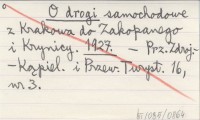 O drogi samochodowe
z Krakowa do Zakopanego
i Krynicy. 1927. — Prz. Zdroj.-
-Kąpiel. i Przew. Turyst. 16,
nr 3.